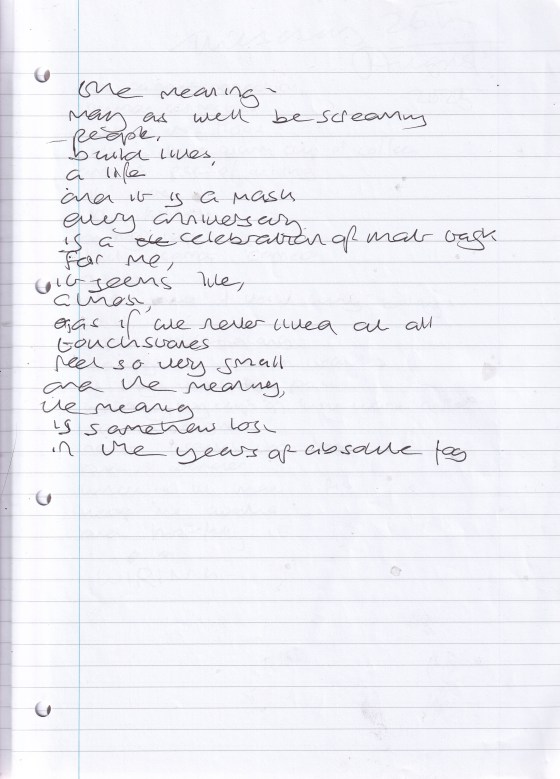 the meaning -
may as well be screaming
people,
build lives,
a life
and it is a mask
every anniversary
is a celebration of that task
for me,
it seems like,
almost,
as if we never lived at all
touchstones
feel so very small
and the meaning,
the meaning
is somehow lost
in the years of absolute fog